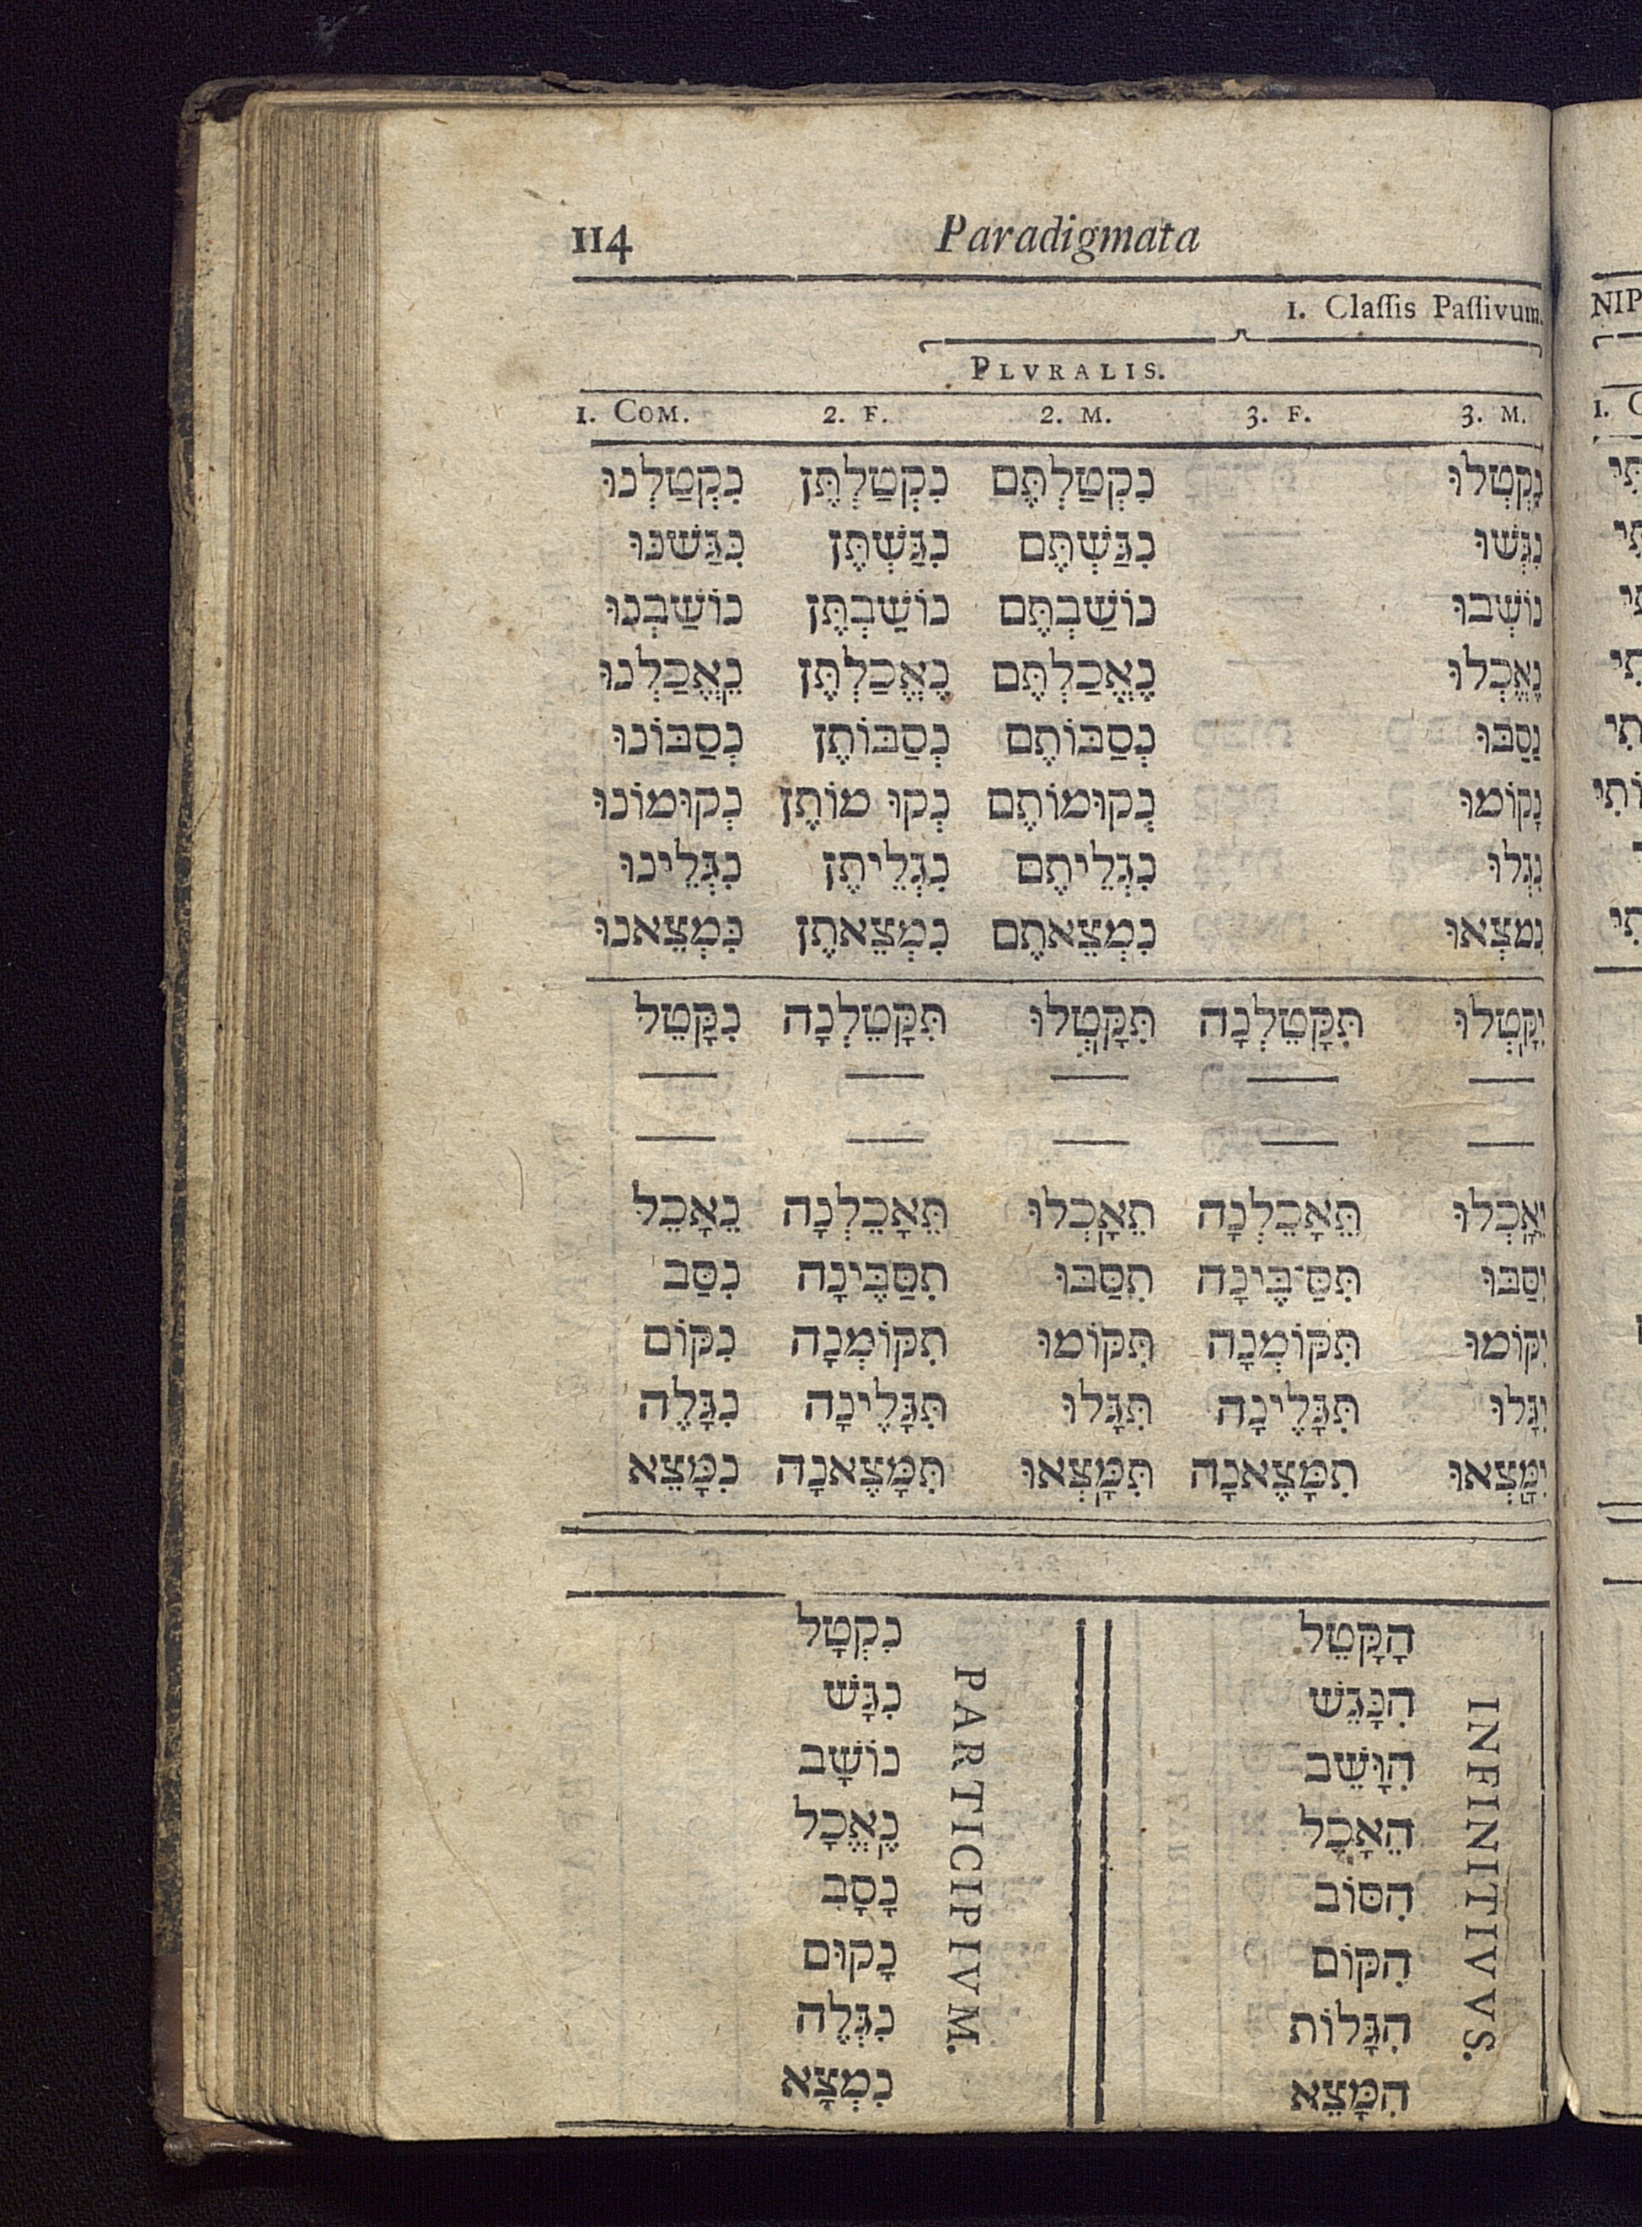 114 Paradigmata
1. Claſſis Paſſivum.
PLVRALIS.
1. COM. 2. F. 2. M. 3. F. 3. M.
נִקְטְלוּ נִקְטַלְתֶּם נִקְטַלְתֶּן נִקְטַלְנוּ
נִגְּשׁוּ נִגַּשְׁתֶּם נִגַּשְׁתֶּן נִגַּשׁנוּ
נוֹשְׁבוּ נוֹשַׁבְתֶּם נוֹשַׁבְתֶּן נוֹשַׁבְנוּ
נֶאֶכְלוּ נֶאֱכַלְתֶּם נֶאֱכַלְתֶּן נֶאֱכַלְנוּ
נָסַבּוּ נְסַבּוֹתֶם נְסַבּוֹתֶן נְסַבּוֹנוּ
נָקוֹמוּ נְקוּמוֹתֶם נְקוּ מוֹתֶן נְקוּמוֹנוּ
נִגְלוּ נִגְלֵיתֶם נִגְלֵיתֶן נִגְלֵינוּ
נִמצְאוּ נִמְצֵאתֶם נִמְצֵאתֶן נִמְצֵאנוּ
יִקָּטְלוּ תִּקָּטֵלְנָה תִּקָּטְלוּ תִּקָּטֵלְנָה נִקָּטֵל
— — — — —
— — — — —
יֵאָכְלוּ תֵּאָכֵלְנָה תֵאָכְלוּ תֵּאָכֵלְנָה נֵאָכֵל
יִסַּבּוּ תִּסַּ־בֶּינָה תִסַּבּוּ תִסַּבֶּינָה נִסַּב
יִקּוֹמוּ תִּקּוֹמְנָה תִּקּוֹמוּ תִקּוֹמְנָה נִקּוֹם
יִגָּלוּ תִּגָּלֶינָה תִּגָּלוּ תִּגָּלֶינָה נִגָּלֶה
יִמָּצְאוּ תִמָּצֶאנָה תִּמָּצְאוּ תִּמָּצֶאנָה נִמָּצֵא
INFINITIVVS.
הִקָּטֵל
הִנָּגֵשׁ
הִוָּשֵׁב
הֵאָכָל
הִסּוֹב
הִקּוֹם
הִגָּלוֹת
הִמָּצֵא
PARTICIPIVM.
נִקְטָל
נִגָּשׁ
נוֹשָׁב
נֶאֱכָל
נָסָב
נָקוּם
נִגְלֶה
נִמְצָא
NIP
1. C